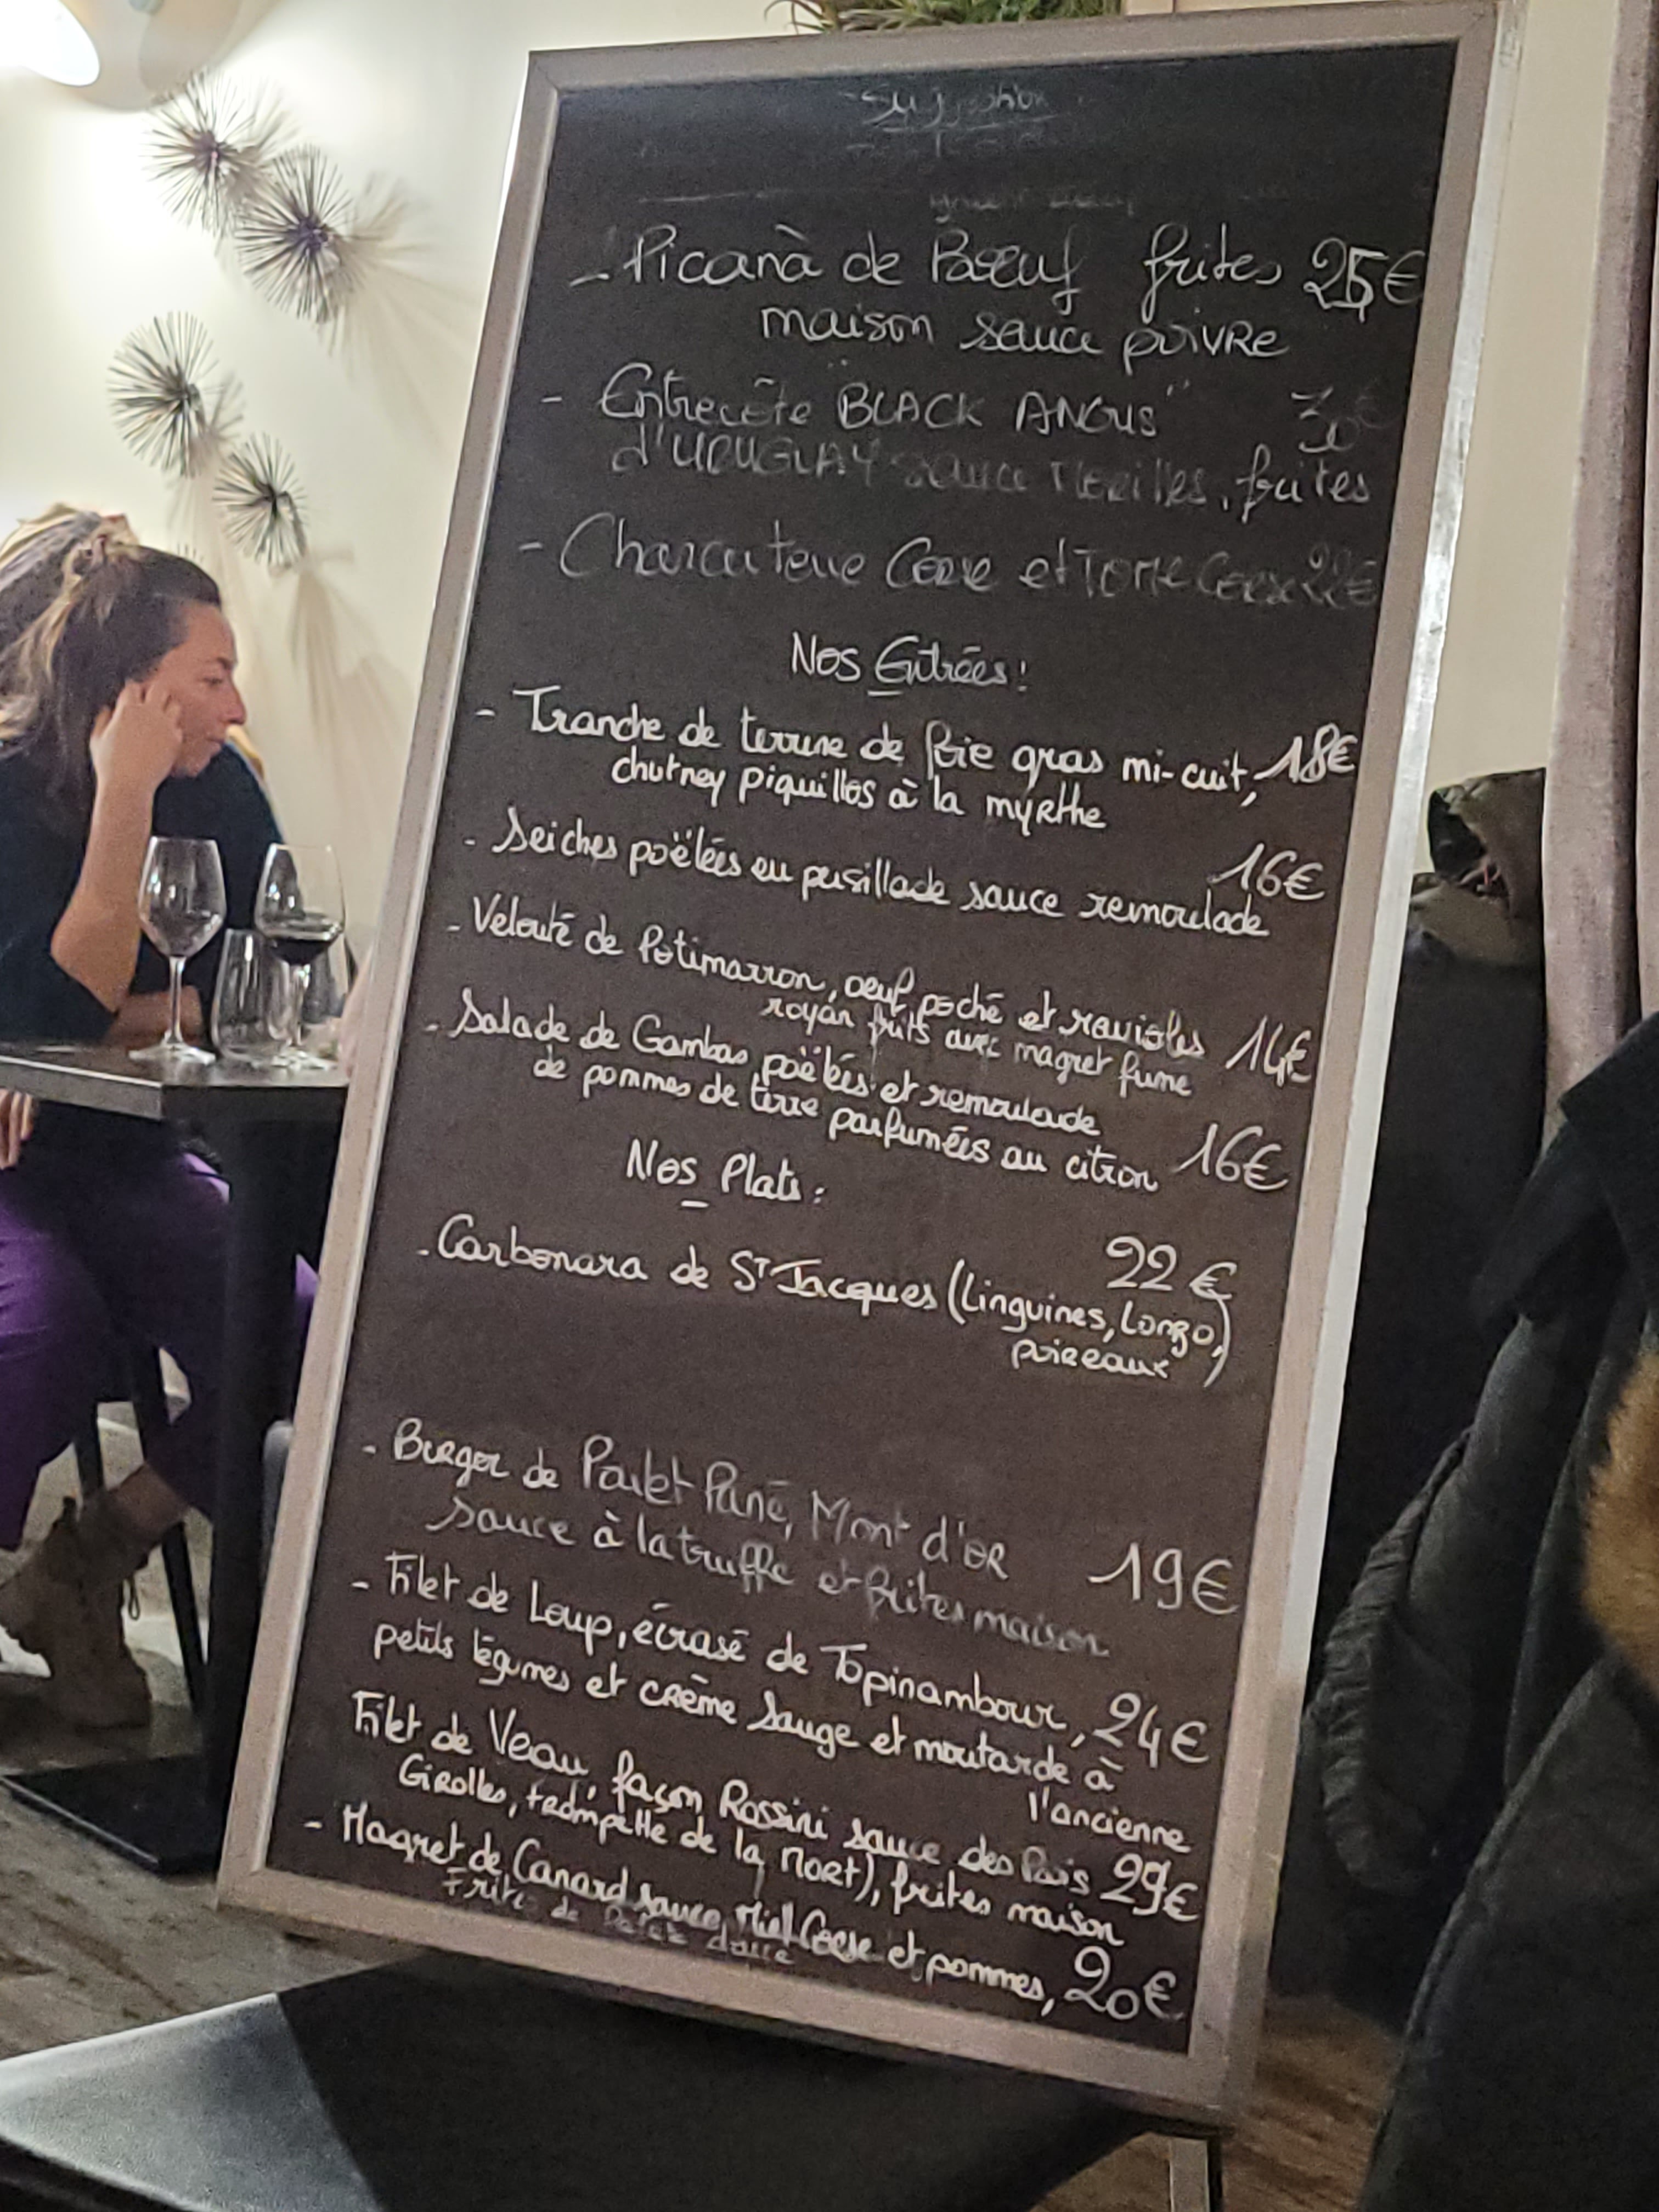 Suggestion
- Picanà de Bœuf frites 25€
maison sauce poivre
- Entrecôte "BLACK ANGUS" 30€
d'URUGUAY sauce Morilles, frites
- Charcuterie Corse et Corse
Nos Entrées :
- Tranche de terrine de foie gras mi-cuit, 18€
chutney piquillos à la myrthe
- Seiches poëlées en persillade sauce remoulade 16€
- Velouté de Potimarron, oeuf poché et ravioles 14€
royan frits avec magret fumé
- Salade de Gambas poëlées et remoulade
de pommes de terre parfumées au citron 16€
Nos Plats :
- Carbonara de St Jacques (Linguines, Lonzo, 22€
poireaux)
- Burger de Poulet Pané, Mont d'OR 19€
sauce à la truffe et frites maison
- Filet de Loup, écrasé de Topinambour, 24€
petits légumes et crème sauge et moutarde à
l'ancienne
Filet de Veau, façon Rossini sauce des Bois 29€
Girolles, trompette de la mort), frites maison
- Magret de Canard sauce Miel Corse et pommes, 20€
Frites de Patate douce